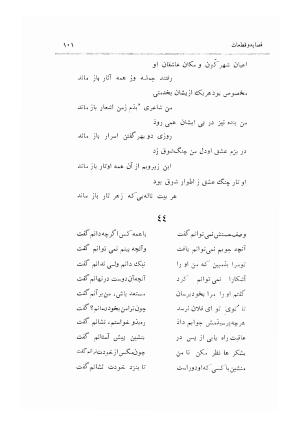 قصاید و قطعات ۱۰۱
اعیان شهر کون و مکان عاشقان او
رفتند جمله وز همه آثار باز ماند
مخصوص بود هریک از ایشان بخدمتی
من شاعری بدم ز من اشعار باز ماند
من بنده نیز در پی ایشان همی رود
روزی دو بهر گفتن اسرار باز ماند
در بزم عشق او دل من چنگ شوق زد
این زیر و بم از آن همه اوتار باز ماند
او تار چنگ عشق ز اطوار شوق بود
هر بیت ناله‌یی که ز هر تار باز ماند
۴۴
وصف حسنش نمی‌توانم گفت با همه کس اگر چه دانم گفت
آنچه جویم نمی‌توانم یافت وآنچه بینم نمی‌توانم گفت
که من او را نیک دانم ولی ندانم گفت
آشکارا نمی‌توانم کرد آنچه آن دوست در نهانم گفت
گفتم او را بخود برسان مستعد باش، من بر آنم گفت
تا کوی توای فلان نرسد
هر چه پرسیدمش جوابم داد رمز و خواستم، نشانم گفت
عاقبت راه یابی از پس در بنشین پیش آستانم گفت
بشکر ها نظر مکن تا من چون مگس از خودت برانم گفت
منشین با کسی که او دور است تا بنزد خودت نشانم گفت